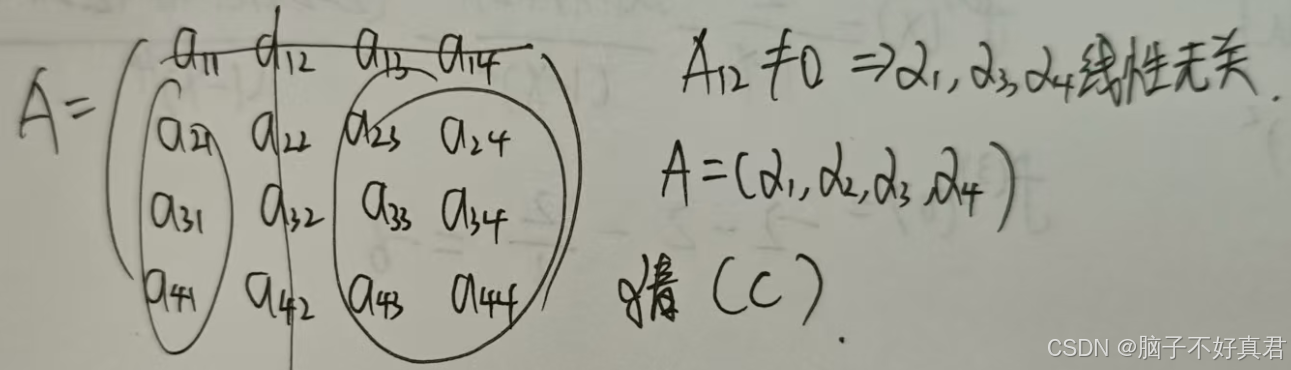 a₁₁ a₁₂ a₁₃ a₁₄
A=
a₂₁ a₂₂ a₂₃ a₂₄
a₃₁ a₃₂ a₃₃ a₃₄
a₄₁ a₄₂ a₄₃ a₄₄
A₁₂≠0 ⇒α₁,α₃,α₄线性无关.
A=(α₁,α₂,α₃,α₄)
(C).
CSDN @脑子不好真君